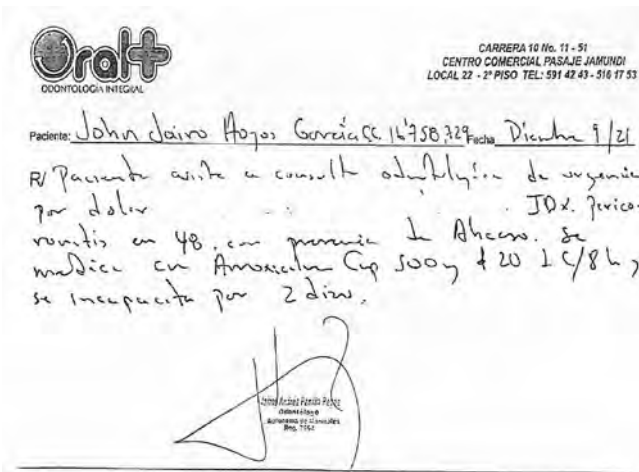 Oral+
ODONTOLOGÍA INTEGRAL
CARRERA 10 No. 11 - 51
CENTRO COMERCIAL PASAJE JAMUNDI
LOCAL 22 - 2º PISO TEL: 591 42 43 - 516 17 53
Paciente: John Jairo Hoyos García CC. 16'758,729 Fecha Diciembre 9/21
R/ Paciente asiste a consulta odontológica de urgencia
por dolor IDx. Perico
ronitis en 48, con presencia de Absceso. Se
medica con Amoxicilina Cap 500 # 20 1 C/8 h y
se incapacita por 2 días.
Odontólogo